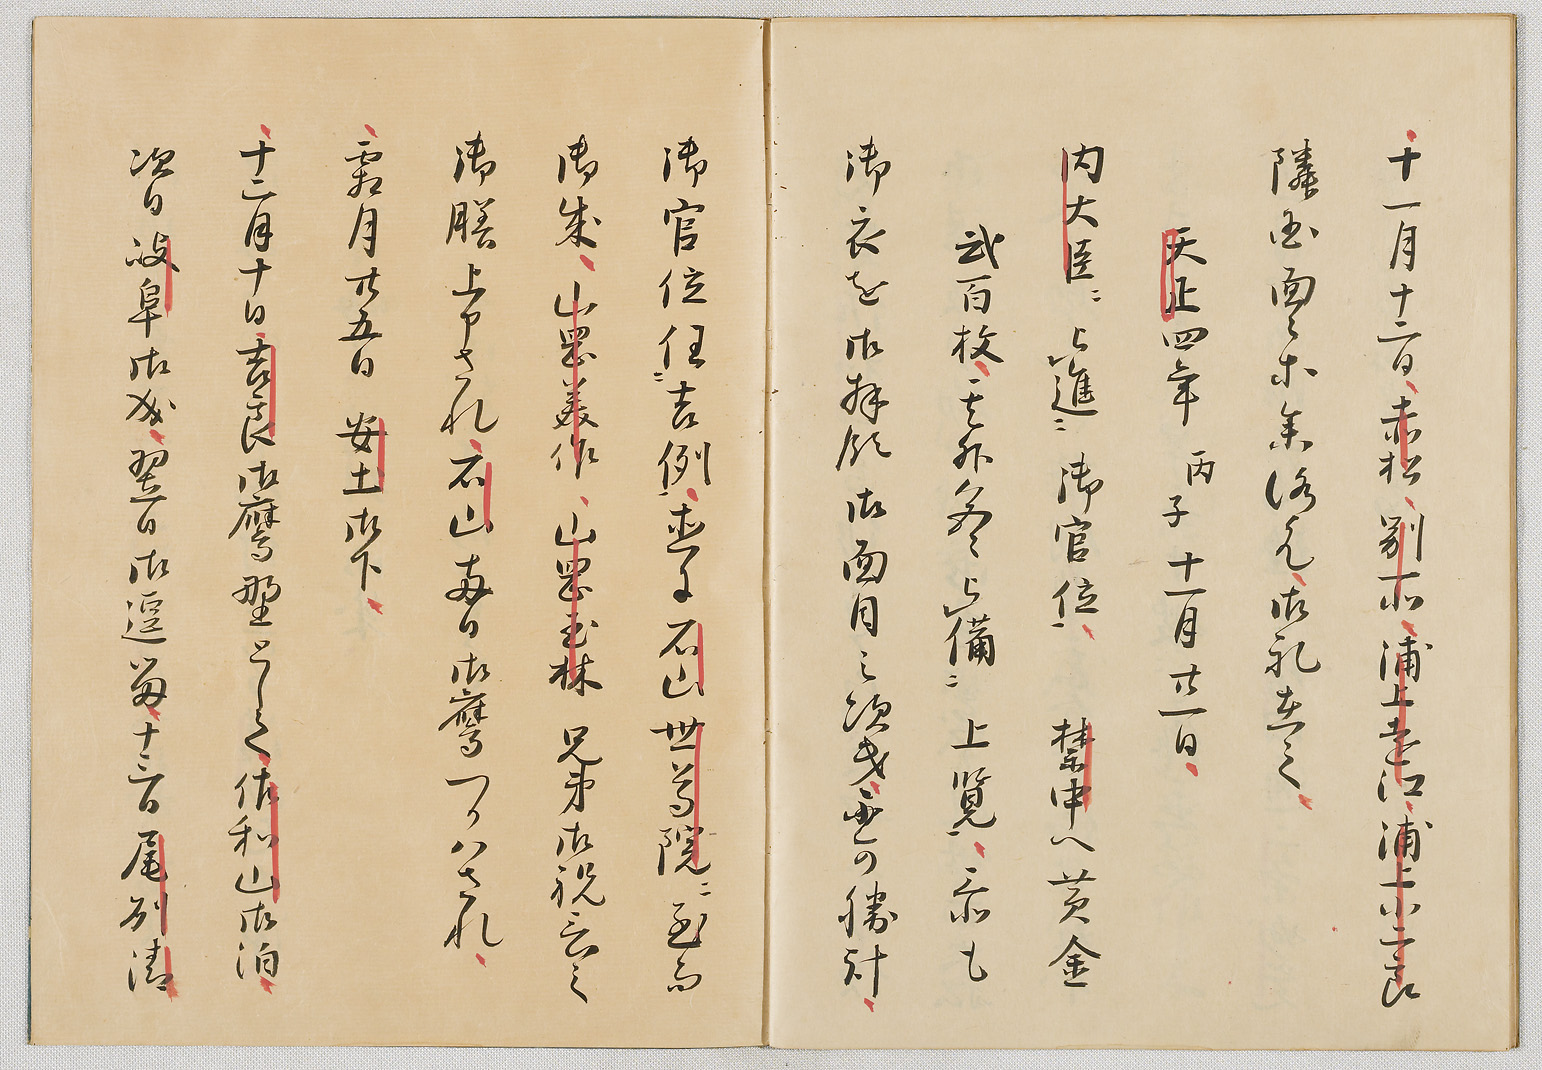 十一月十二日赤松別所浦上遠江浦上小二郎
隣国面々等参洛候て御礼在之
天正四年丙子十一月廿一日
内大臣ニ上進ニ御官位禁中へ黄金
弐百枚其外色々上備ニ上覧忝も
御衣を御拝領御面目之次第無申事
御官位任ニ吉例直に石山世尊院ニ至而
御成山岡美作山岡玉林兄弟御祝言之
御膳上申され石山両日御鷹つかハされ
霜月廿五日安土御下
十二月十日吉良御鷹野として佐和山御泊
次日岐阜御成翌日御逗留十三日尾州清